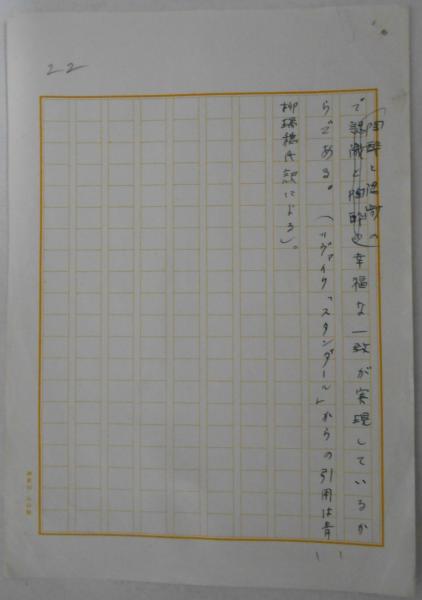 22
陶酔と認識の
で認識と陶酔の幸福な一致が実現しているか
らである。（ツヴァイク「スタンダール」からの引用は青
柳瑞穂氏訳による）。